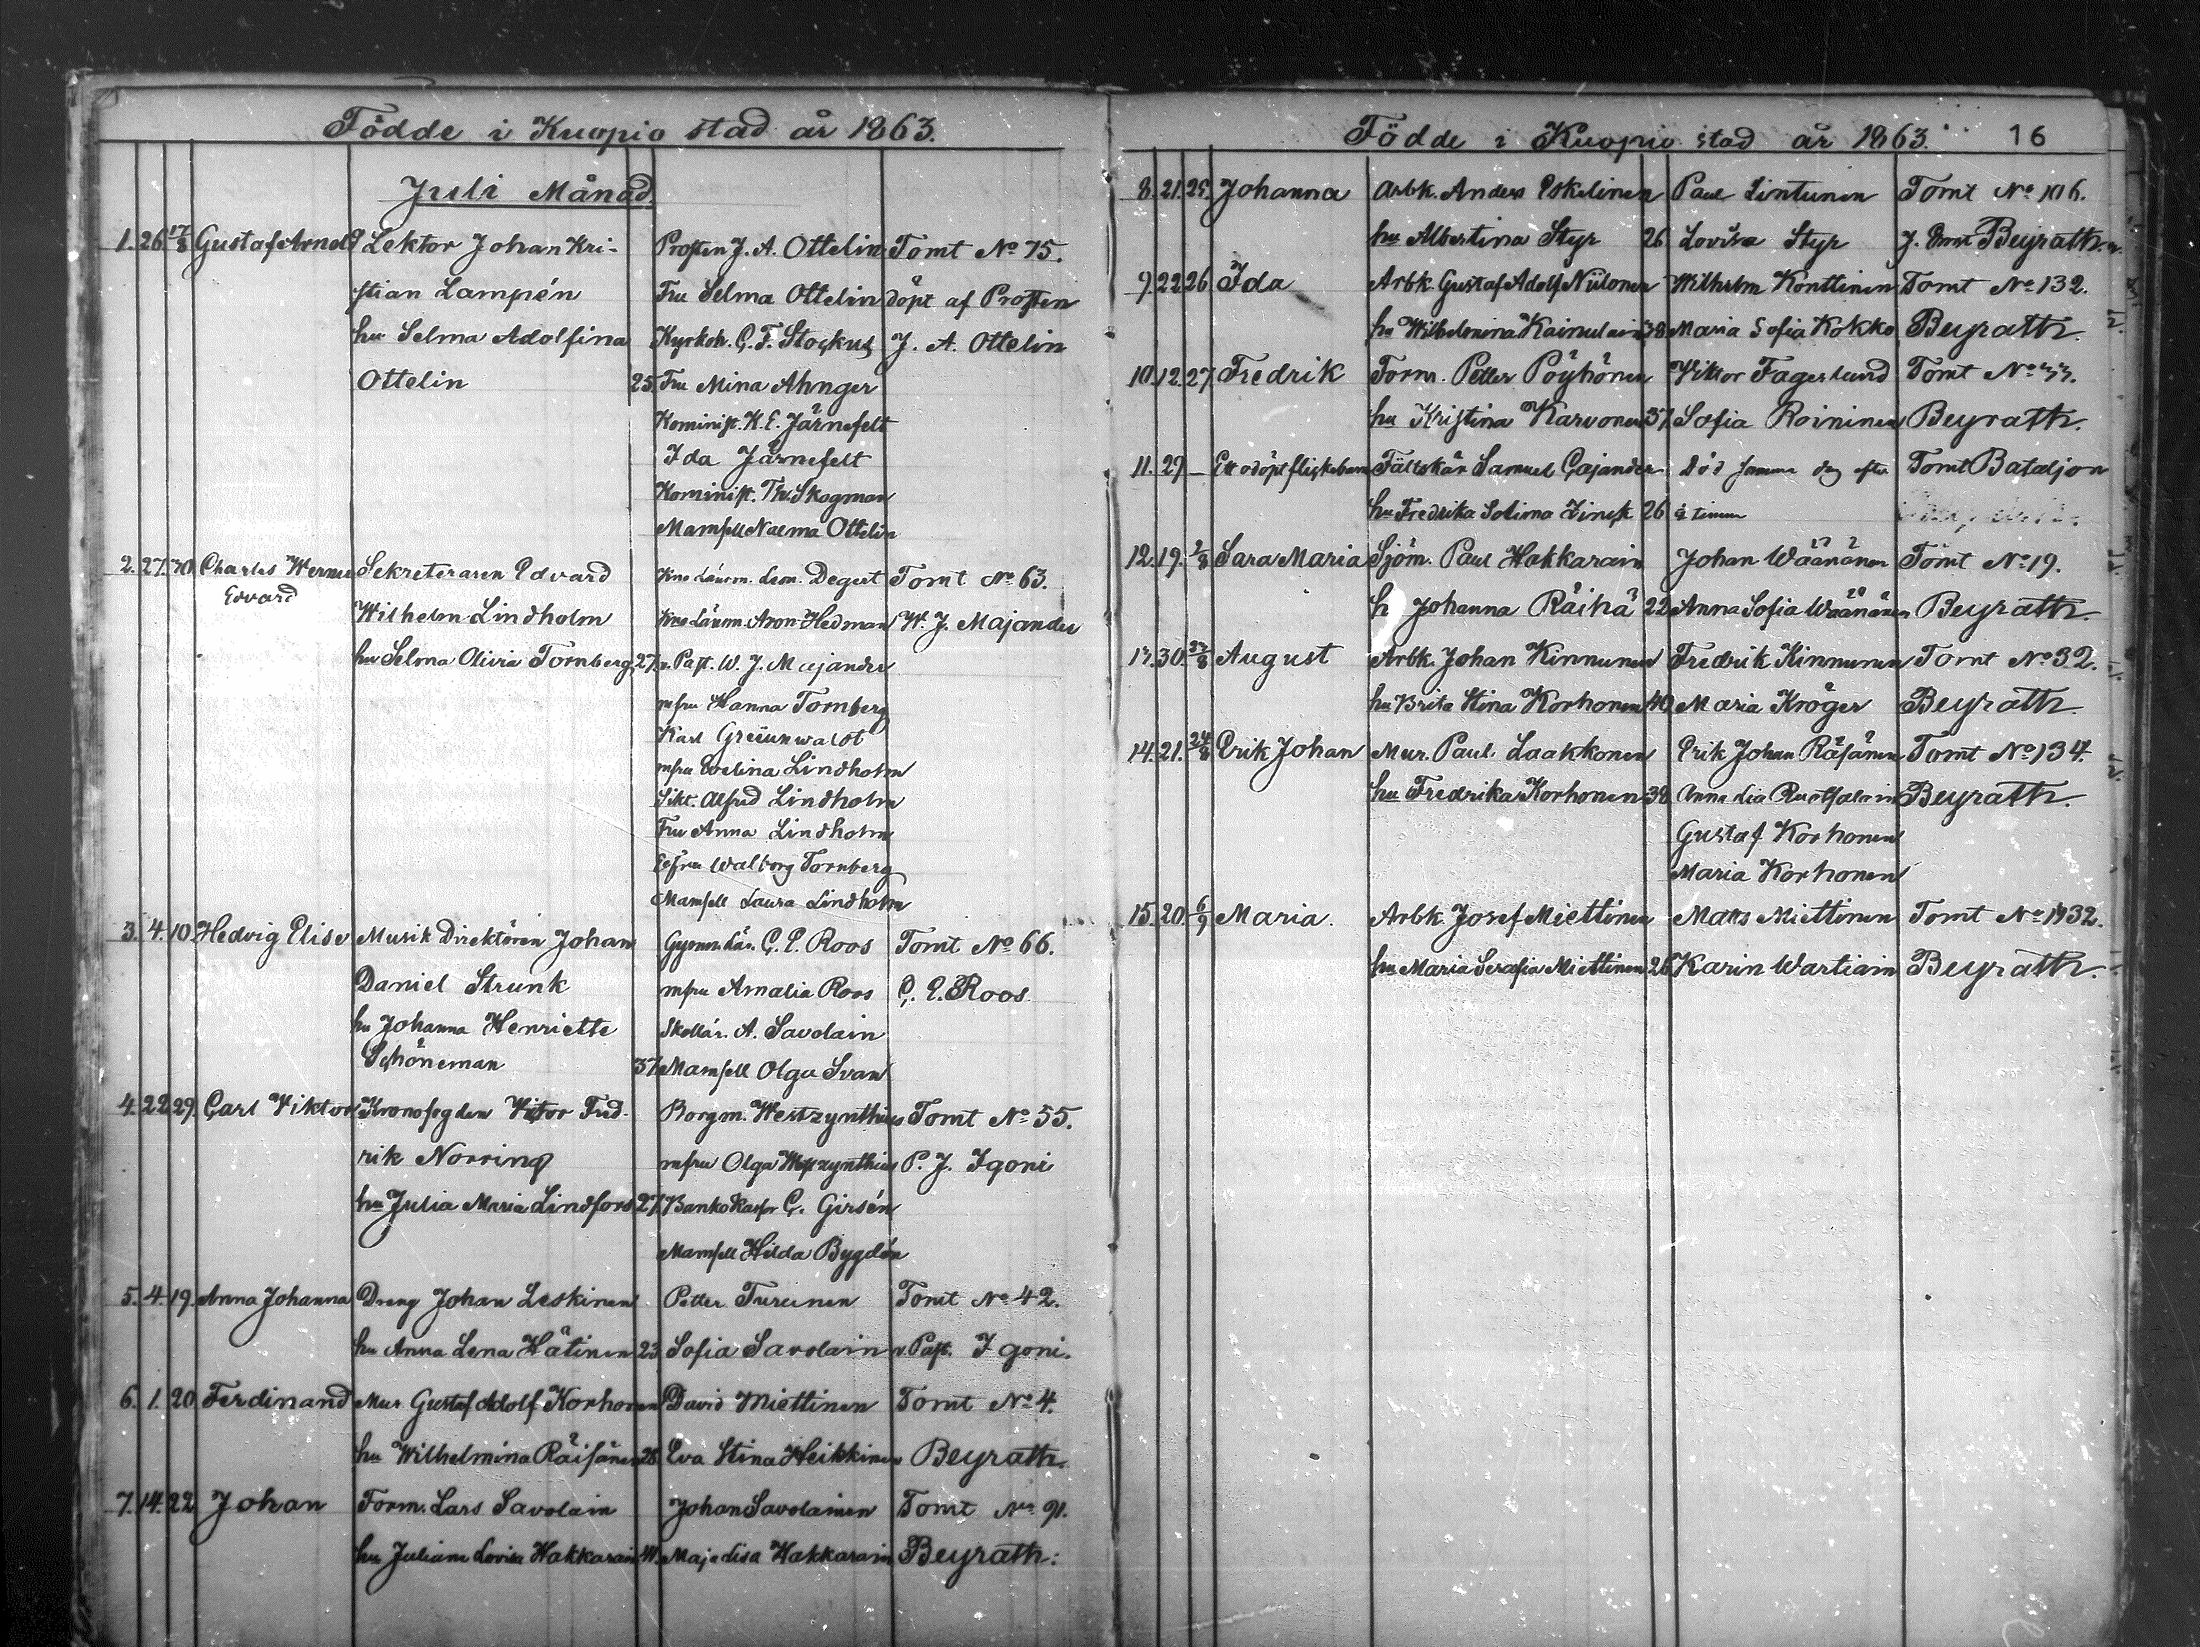 Födde i Kuopio stad år 1863.
Juli Månad
1. 26. 17/8 Gustaf Arnold Lektor Johan Kri- Prosten J. A. Ottelin Tomt No 75.
stian Lampén Fru Selma Ottelin döpt af Prosten
hu Selma Adolfina Kyrkoh. C. F. Stockus J. A. Ottelin
Ottelin 25 Fru Mina Ahnger
Kominist. K. E. Järnefelt
Ida Järnefelt
Kominist. Th. Skogman
Mamsell Naema Ottelin
2. 27. 30. Charles Werner Sekreteraren Edvard Kno Länsm. Leon. Degert Tomt No 63.
Edvard
Wilhelm Lindholm Kno Länsm. Aron Hedman W. J. Majander
hu Selma Olivia Tornberg 27. v. Past. W. J. Majander
mfru Hanna Tornberg
Karl Greünwaldt
mfru Evelina Lindholm
Sekt. Alfred Lindholm
Fru Anna Lindholm
Walborg Tornberg
Mamsell Laura Lindholm
3. 4. 10. Hedvig Elise Musik Direktören Johan Gymn. Lär. C. E. Roos Tomt No 66.
Daniel Strunk mfru Amalia Roos C. E. Roos.
hu Johanna Henriette Skollär. A. Savolain
Schöneman 37. Mamsell Olga Svan
4. 22 29. Carl Viktor Kronofogden Viktor Fred- Borgm. Westzynthius Tomt No 55.
rik Norring mfru Olga Westzynthius P. J. Igoni
hu Julia Maria Lindfors 27. Banko Kassör C. Girsén
Mamsell Hilda Bygdén
5. 4. 19. Anna Johanna Dreng Johan Leskinen Petter Turunen Tomt No 42.
hu Anna Lena Hätinen 23 Sofia Savolain v. Past. Igoni.
6. 1. 20 Ferdinand Mur Gustaf Adolf Korhonen David Miettinen Tomt No 4.
hu Wilhelmina Räisänen 28 Eva Stina Heikkinen Beyrath.
7. 14. 22 Johan Form. Lars Savolain Johan Savolainen Tomt No 91.
hu Juliana Lovisa Hakkarain 41. Maja Lisa Hakkarain Beyrath.
Födde i Kuopio stad år 1863. 16
8. 21. 25. Johanna Arbk. Anders Eskelinen Paul Lintunen Tomt No 106.
hu Albertina Styr 26 Lovisa Styr Beyrath.
9. 22 26 Ida Arbk. Gustaf Adolf Niilonen Wilhelm Konttinen Tomt No 132.
hu Wilhelmina Kainulain 38 Maria Sofia Kokko Beyrath.
10. 12. 27. Fredrik Form. Petter Pöyhönen Viktor Fagerlund Tomt No 33.
hu Kristina Karvonen 37. Sofia Roininen Beyrath.
11. 29. — Ett odöpt flickebarn Fältskär Samuel Cajander Död samma dag efter Tomt Bataljon
hu Fredrika Solima Zinck 26 timme
12. 19. 2/8 Sara Maria Sjöm. Paul Hakkarain Johan Wäänänen Tomt No 19.
h Johanna Räihä 22 Anna Sofia Wäänänen Beyrath.
13. 30. August Arbk. Johan Kinnunen Fredrik Kinnunen Tomt No 32.
hu Brita Stina Korhonen 40 Maria Kröger Beyrath.
14. 21. 24/8 Erik Johan Mur. Paul Laakkonen Erik Johan Räsänen Tomt No 134.
hu Fredrika Korhonen 38 Anna Lia Ruotsalain Beyrath.
Gustaf Korhonen
Maria Korhonen
15. 20. 6/9 Maria. Arbk. Josef Miettinen Matts Miettinen Tomt No 132.
hu Maria Serafia Miettinen 26 Karin Wartiain Beyrath.